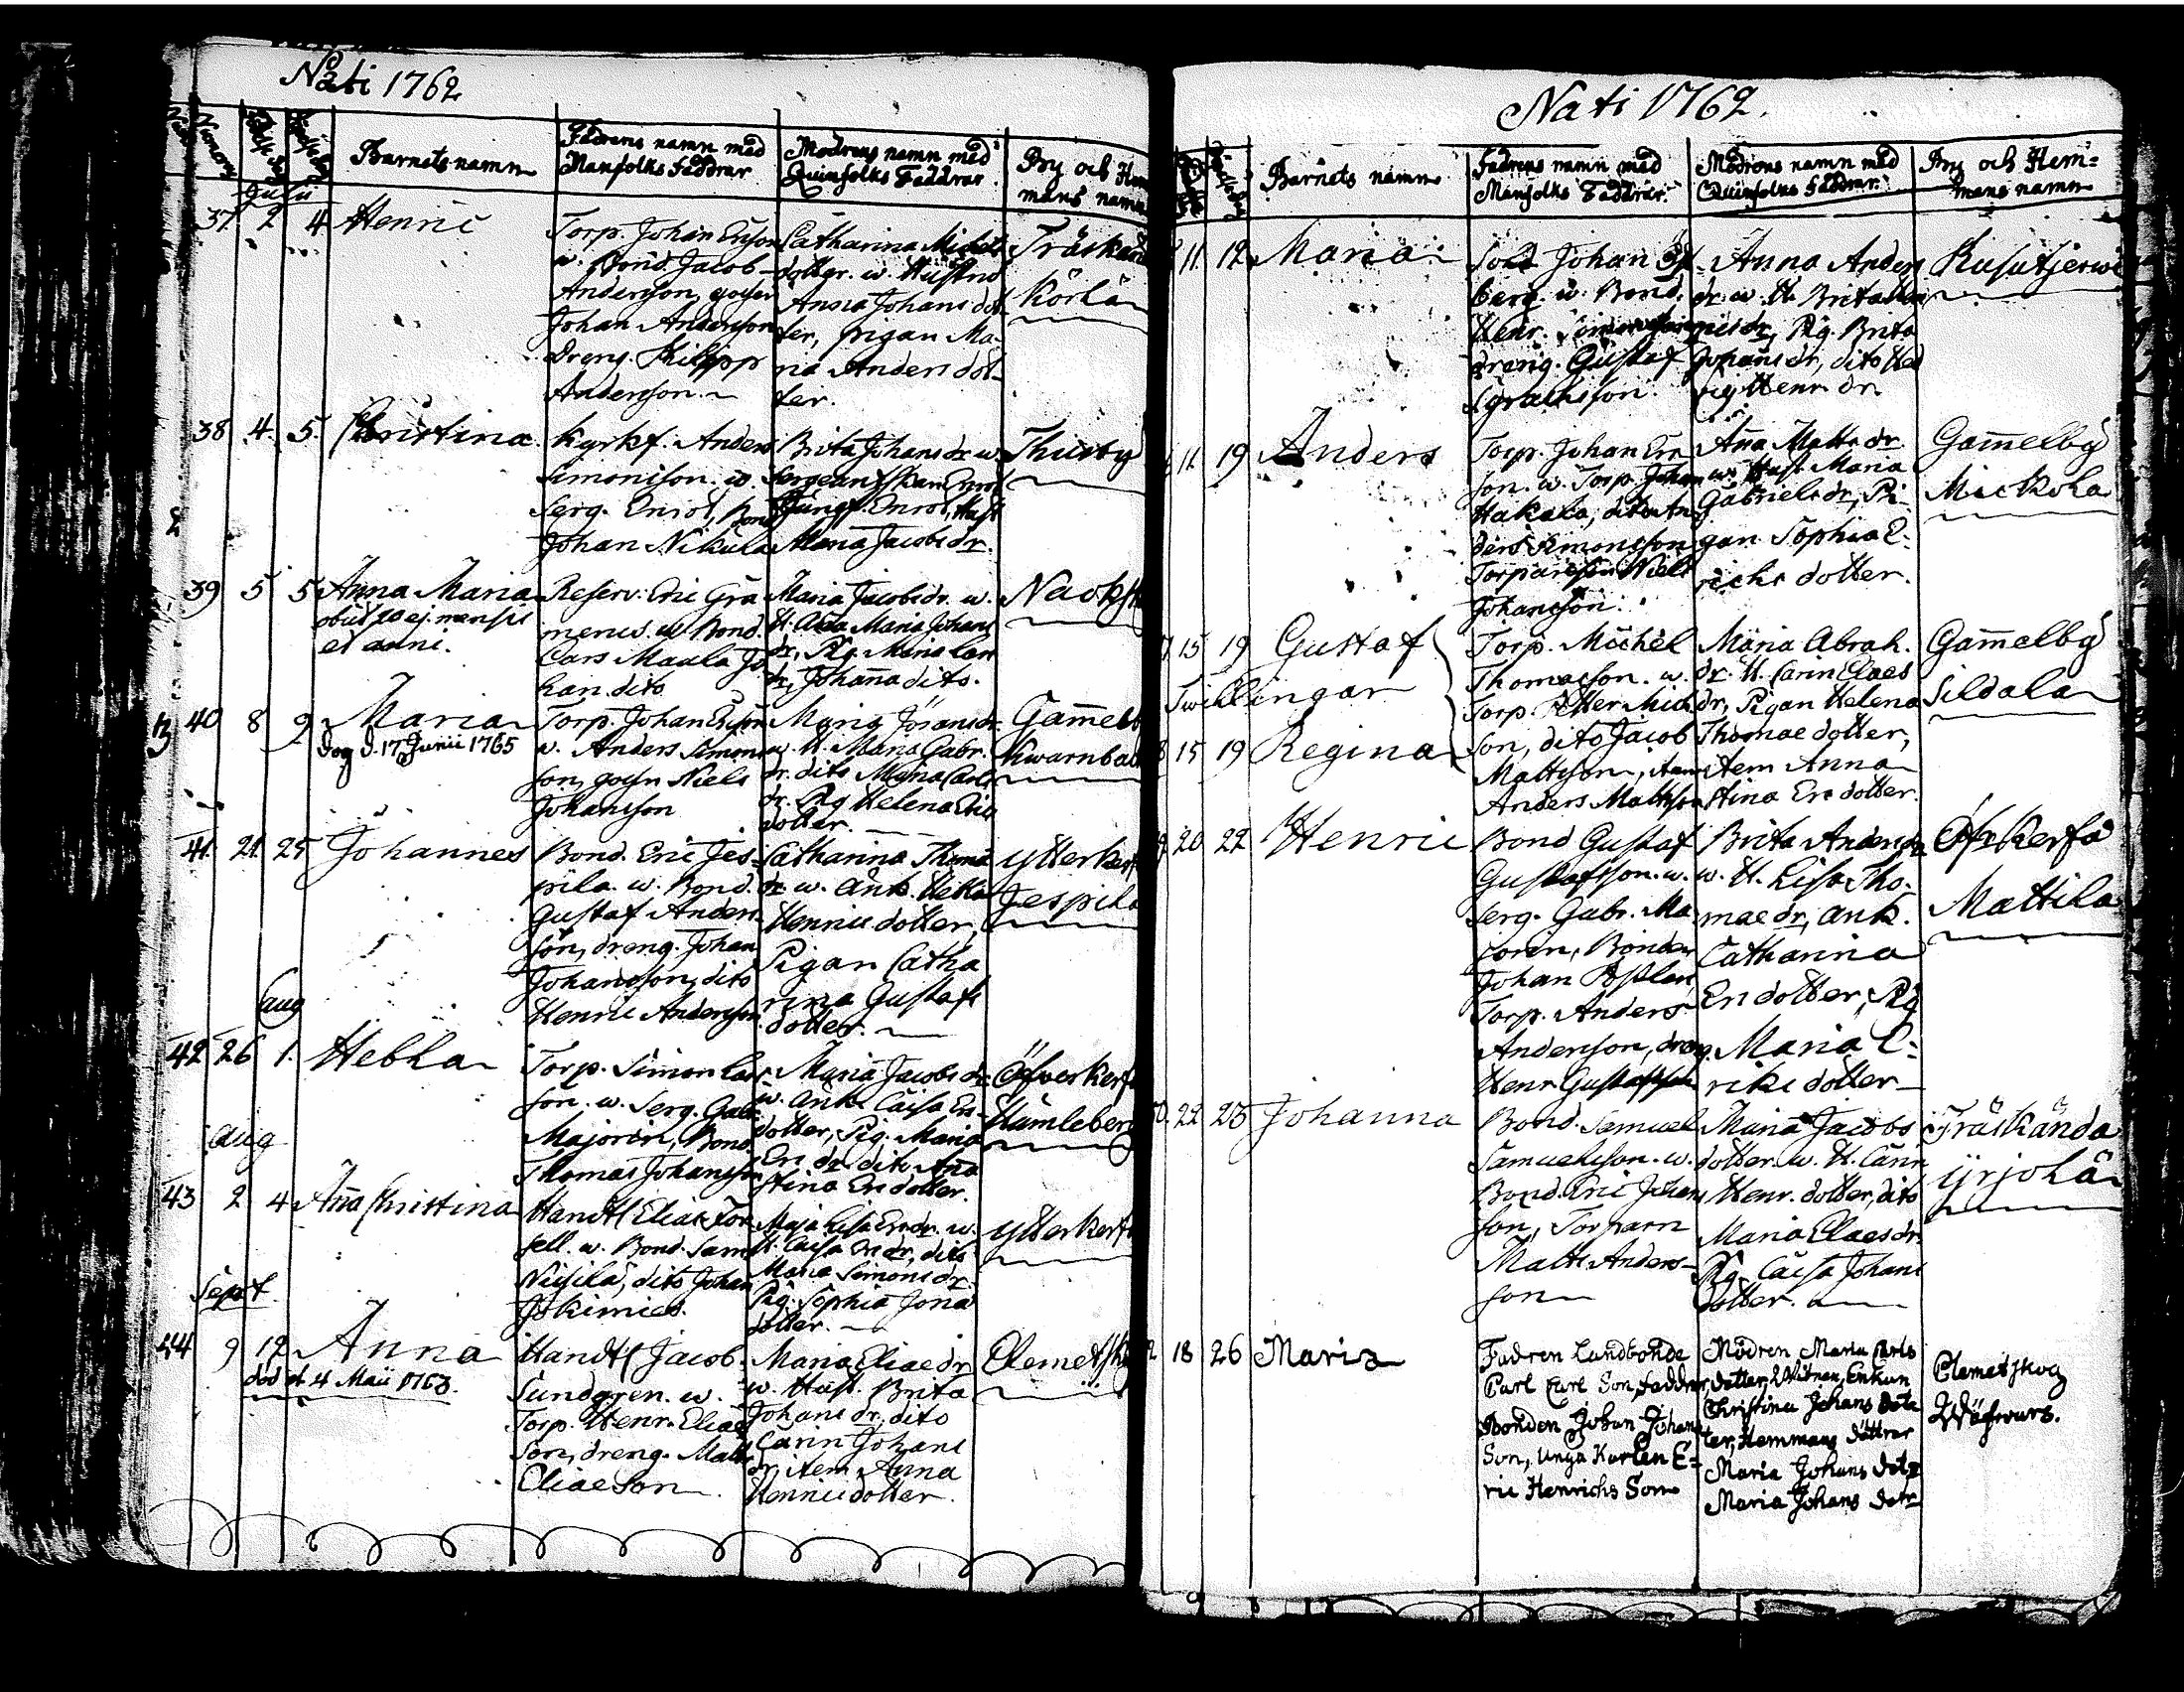 Nati 1762
Barnets namn
Fadrens namn med
Manfolks Faddrar
Modrens namn med
Quinfolks Faddrar
By och Hem
mans namn
Julii
37 2 4 Henric
Torp. Johan Ericson
w. Bond. Jacob
Anderson, gossen
Johan Anderson
Dreng. Philipp
Anderson
Catharina Michels
dotter. w. Hustru
Anna Johans dot
ter, pigan Ma
ria Anders dot
ter.
Träskända
Körlä
38 4 5 Christina
Kyrkf. Anders
Simonison. w.
Serg. Enrot, Bond
Johan Nikula
Brita Johans dr w.
Sergeantskan Enrot
Jungf. Enrot, Hust
Maria Jacobs dr.
Thusby
39 5 5 Anna Maria
obiit 20 ej. mensis
et anni.
Reserv. Eric Gra
menus. w. Bond.
Lars Maula Jo
han dito
Maria Jacobs dr. w.
H. Maria Johans
dr, Pig. Maria Lars
dr, Johanna dito.
Nacksk
40 8 9 Maria
Dog d. 17 Junii 1765
Torp. Johan Ericson
w. Anders Simons
son, gossen Niels
Johansson
Maria Jörans dr
w. H. Maria Gabr.
dr. dito Maria Carls
dr. Pig Helena Eric
dotter.
Gam̄elb
Kwarnbac
41 21 25 Johannes
Bond. Eric Jes
pila. w. Bond.
Gustaf Anders
son, dreng. Johan
Johansson, dito
Henric Anderson
Catharina Thoma
dr w. Ank. Hebla
Henric dotter,
Pigan Catha
rina Gustafs
dotter.
Ytterkerf
Jespila
Aug
42 26 1. Hebla
Torp. Simon Lars
son. w. Serg. Gabr
Majorin, Bond
Thomas Johansson
Maria Jacobs dr
w. Ank. Caisa Er
dotter, Pig. Maria
Er dr. dito Anna
Stina Er dotter.
Öfverkerf
Humleberg
Aug
43 2 4 Anna Christina
Handtl Elias For
sell. w. Bond. Sam
Nisila, dito Johan
Jokimies.
Maja Lisa Er dr. w.
H. Caisa Er dr, dito
Maria Simons dr.
Pig. Sophia Jona
dotter.
Ytterkerf
Sept.
44 9 12 Anna
död d. 4 Maii 1763.
Handtl Jacob
Sundgren. w.
Torp. Henr. Elias
Son, dreng. Matts
Eliae Son
Maria Eliae dr
w. Hust. Brita
Johans dr, dito
Carin Johans
dr item Anna
Henric dotter.
Clemetsk
Nati 1762.
Barnets namn
Fadrens namn med
Manfolks Faddrar
Modrens namn med
Quinfolks Faddrar
By och Hem=
mans namn
11 12 Maria
Sold Johan
berg. w. Bond.
Henr.
dreng. Gustaf
Anna Anders
dr. w. H. Brita
dr, Pig. Brita
Johans dr, dito Hed
vig Henr dr.
Kusutjerwi
11 19 Anders
Torp. Johan Eric
son. w. Torp. Johan
Hakala, dito An
ders Simonsson
Niels
Johansson.
Anna Matts dr.
w. Hust Maria
Gabriels dr, Pi
gan Sophia E
richs dotter.
Gam̄elby
Mickola
15 19 Gustaf
Twillingar
15 19 Regina
Torp. Michel
Thomasson. w.
Torp. Petter Mich
son, dito Jacob
Mattsson, item
Anders Mattsson
Maria Abrah.
dr. H. Carin Claes
dr, Pigan Helena
Thomae dotter,
item Anna
Stina Er dotter.
Gam̄elby
Sildala
20 22 Henric
Bond Gustaf
Gustafsson. w.
Serg. Gabr. Ma
jorin, Bonden
Johan
Torp. Anders
Anderson, dreng.
Henr Gustafsson
Brita Anders dr
w. H. Lisa Tho
mae dr, Ank.
Catharina
Er dotter, Pig
Maria E
riks dotter
Öfrkerfs
Mattila
22 25 Johanna
Bond. Samuel
Samuelsson. w.
Bond. Eric Johans
son, Torparn
Matts Anders
son
Maria Jacobs
dotter. w. H. Carin
Henr. dotter, dito
Maria Claes dr.
Pig. Caisa Johans
dotter.
Träskända
Yrjölä
18 26 Maria
Fadren Landbonde
Carl Carl Son, faddrar,
Bonden Johan Johans
Son, Unga Karlen E=
ric Henrichs Son
Modren Maria Carls
dotter, Witnen, Enkan
Christina Johans Dot
ter, Hemmans döttrar
Maria Johans dotr
Maria Johans dotr
Clemetskog
Wäfwars.